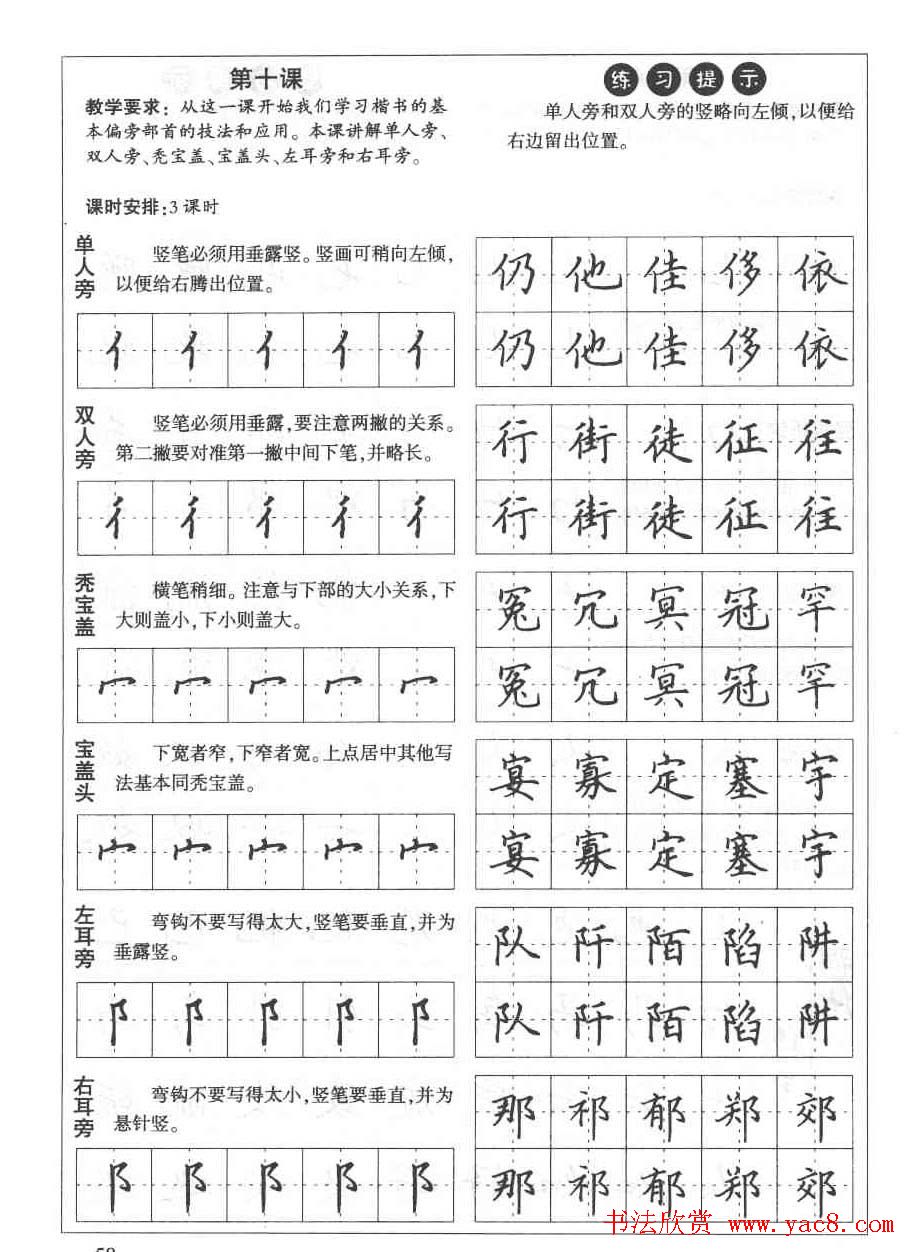 第十课
教学要求：从这一课开始我们学习楷书的基
本偏旁部首的技法和应用。本课讲解单人旁、
双人旁、秃宝盖、宝盖头、左耳旁和右耳旁。
课时安排：3课时
练习提示
单人旁和双人旁的竖略向左倾，以便给
右边留出位置。
单人旁
竖笔必须用垂露竖。竖画可稍向左倾，
以便给右腾出位置。
亻亻亻亻亻
仍他佳侈依
仍他佳侈依
双人旁
竖笔必须用垂露，要注意两撇的关系。
第二撇要对准第一撇中间下笔，并略长。
彳彳彳彳彳
行街徒征往
行街徒征往
秃宝盖
横笔稍细。注意与下部的大小关系，下
大则盖小，下小则盖大。
冖冖冖冖冖
冤冗冥冠罕
冤冗冥冠罕
宝盖头
下宽者窄，下窄者宽。上点居中其他写
法基本同秃宝盖。
宀宀宀宀宀
宴寡定塞宇
宴寡定塞宇
左耳旁
弯钩不要写得太大，竖笔要垂直，并为
垂露竖。
阝阝阝阝阝
队阡陌陷阱
队阡陌陷阱
右耳旁
弯钩不要写得太小，竖笔要垂直，并为
悬针竖。
阝阝阝阝阝
那祁郁郑郊
那祁郁郑郊
书法欣赏 www.yac8.com